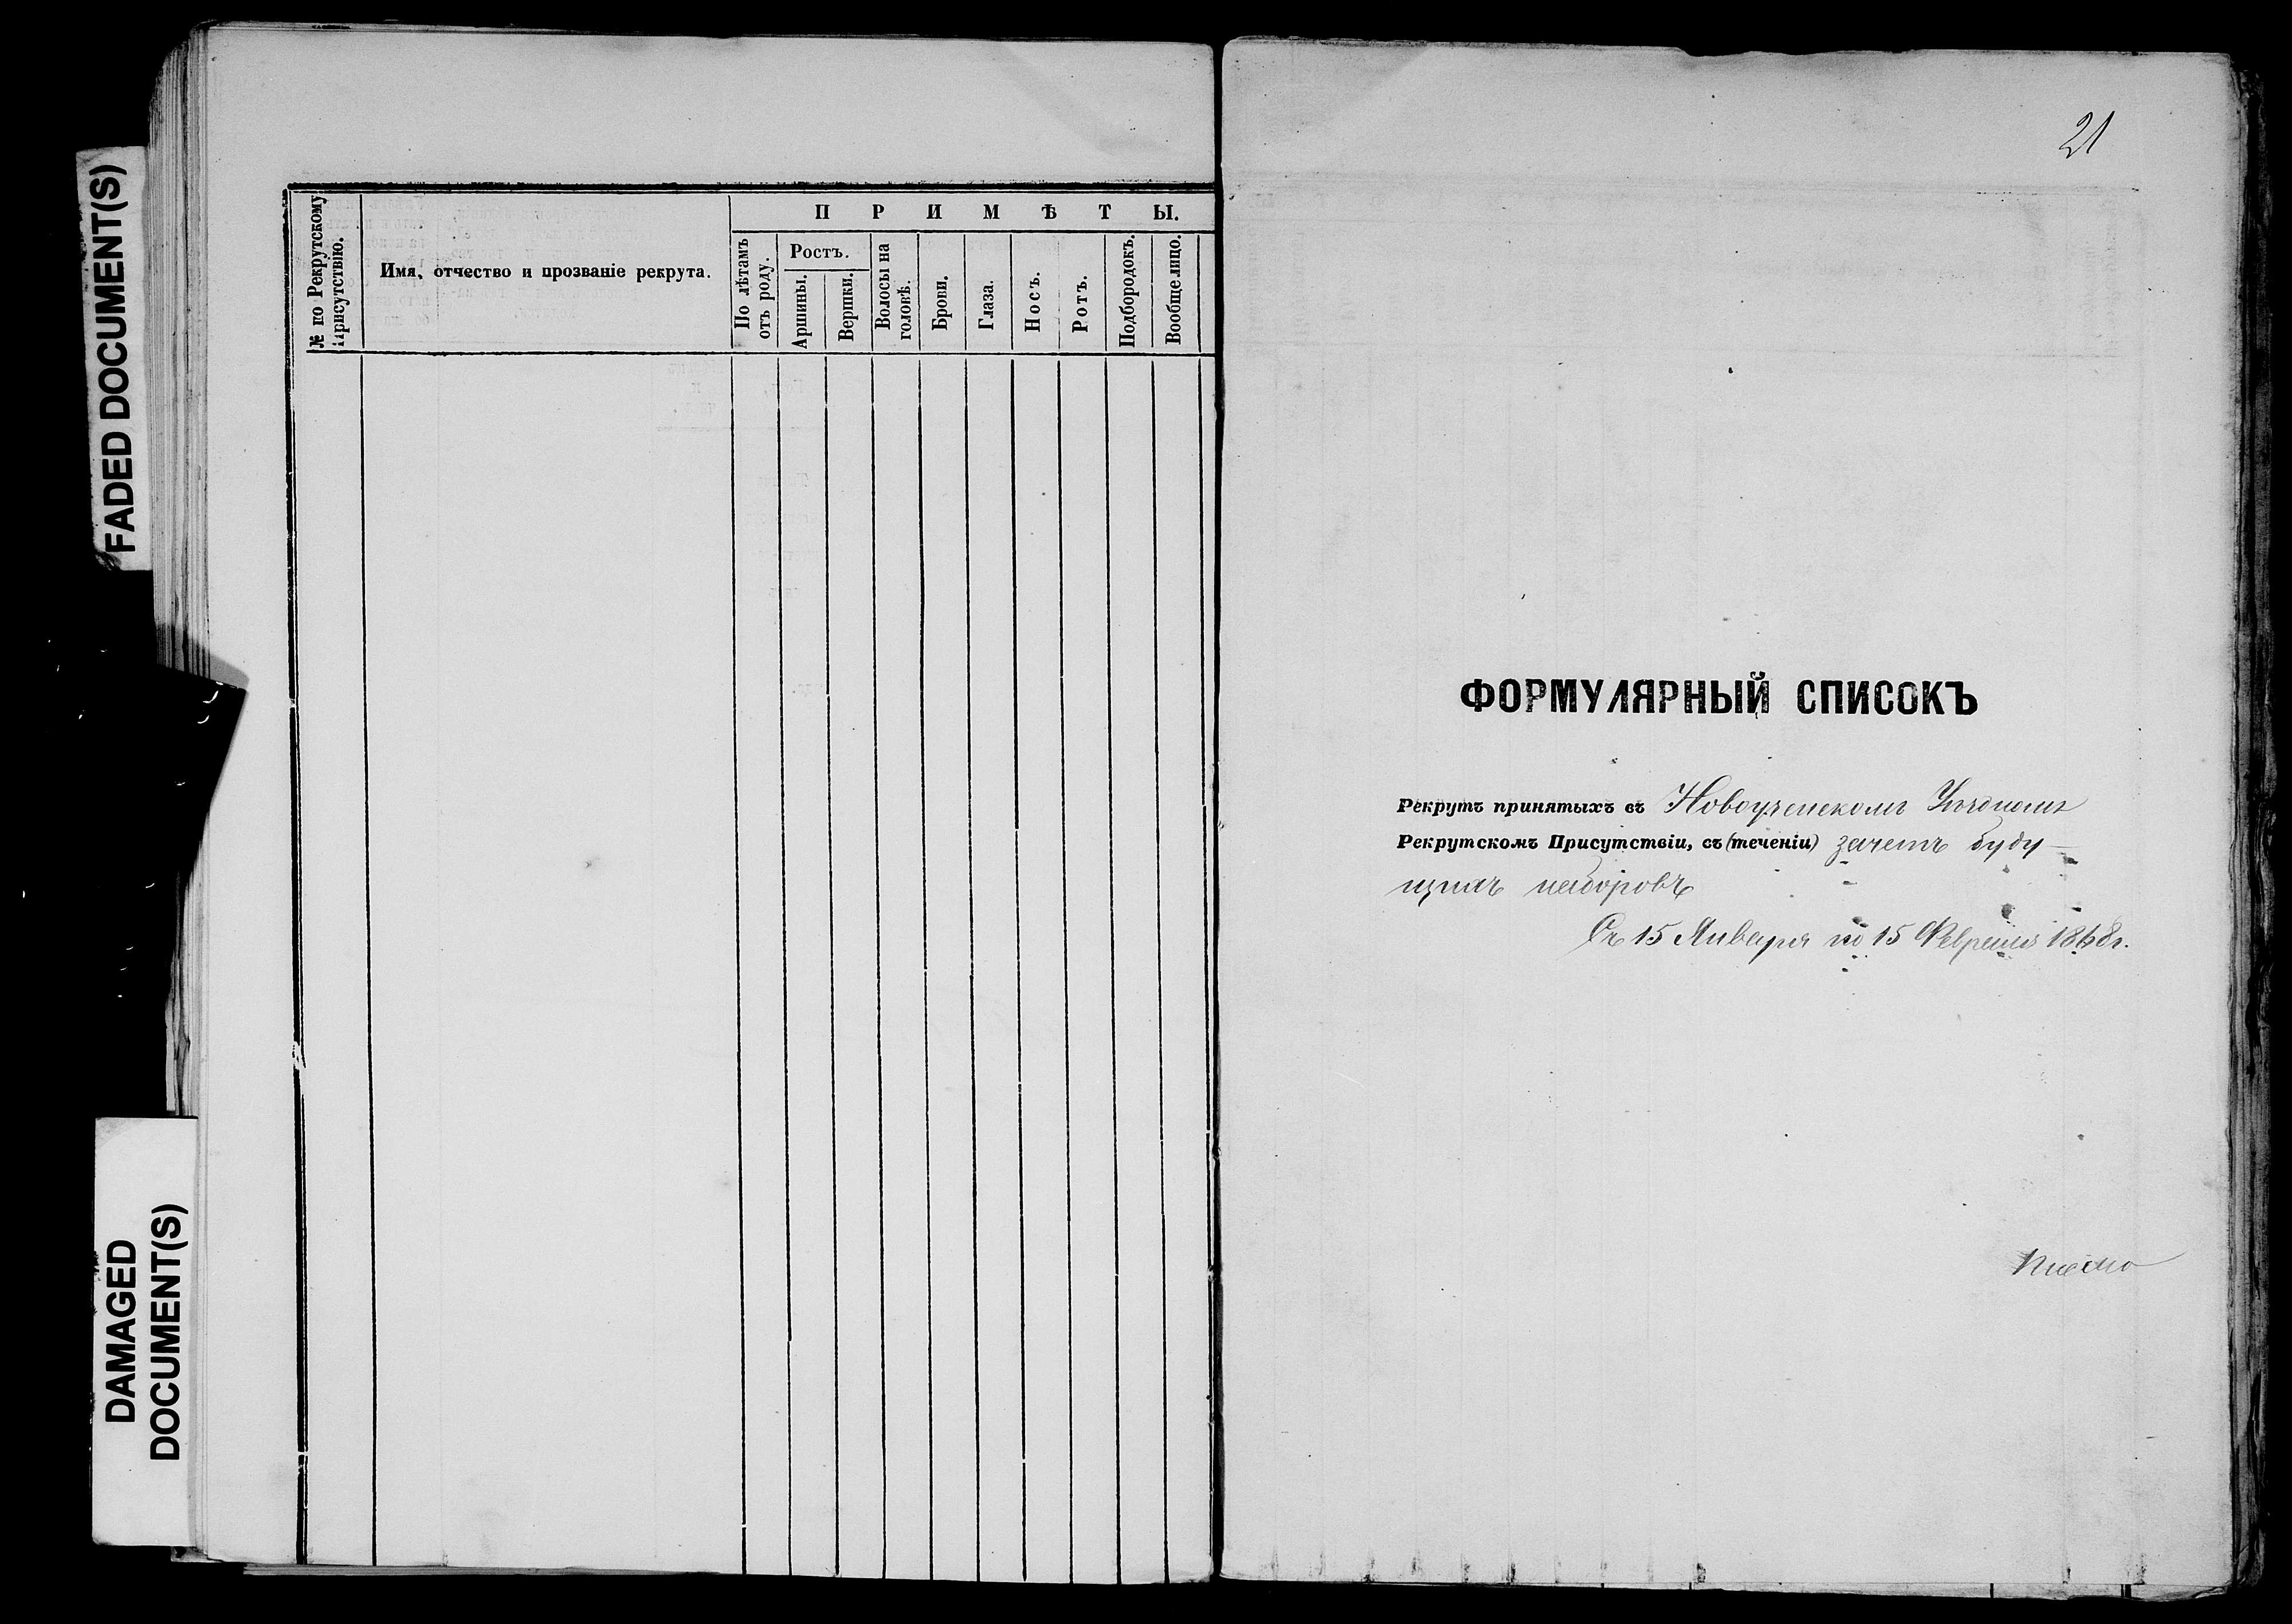 FADED DOCUMENT(S)
DAMAGED
DOCUMENT(S)
№ по Рекрутскому
Присутствію.
Имя, отчество и прозваніе рекрута.
ПРИМѢТЫ.
По лѣтамъ
отъ роду.
Ростъ.
Аршины.
Вершки.
Волосы на
головѣ.
Брови.
Глаза.
Носъ.
Ротъ.
Подбородокъ.
Вообще лицо.
21
ФОРМУЛЯРНЫЙ СПИСОКЪ
Рекрутъ принятыхъ въ Новоузенскомъ Уѣздномъ
Рекрутскомъ Присутствіи, съ (теченіи) зачетъ буду-
щихъ наборовъ
Съ 15 Января по 15 Февраля 1868 г.